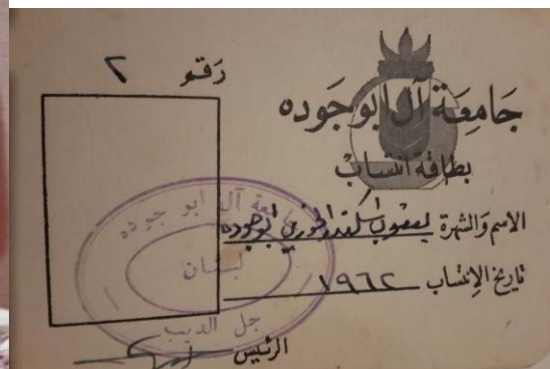 رَقم ٢
جَامعَة آل ابو جَوده
بطاقة انتساب
الاسم وَالشهرة يعقوب اسكندر الخوري ابوجوده
تاريخ الإنتساب ١٩٦٢
الرئيس
جامعة آل ابو جوده
لبنان
جل الديب